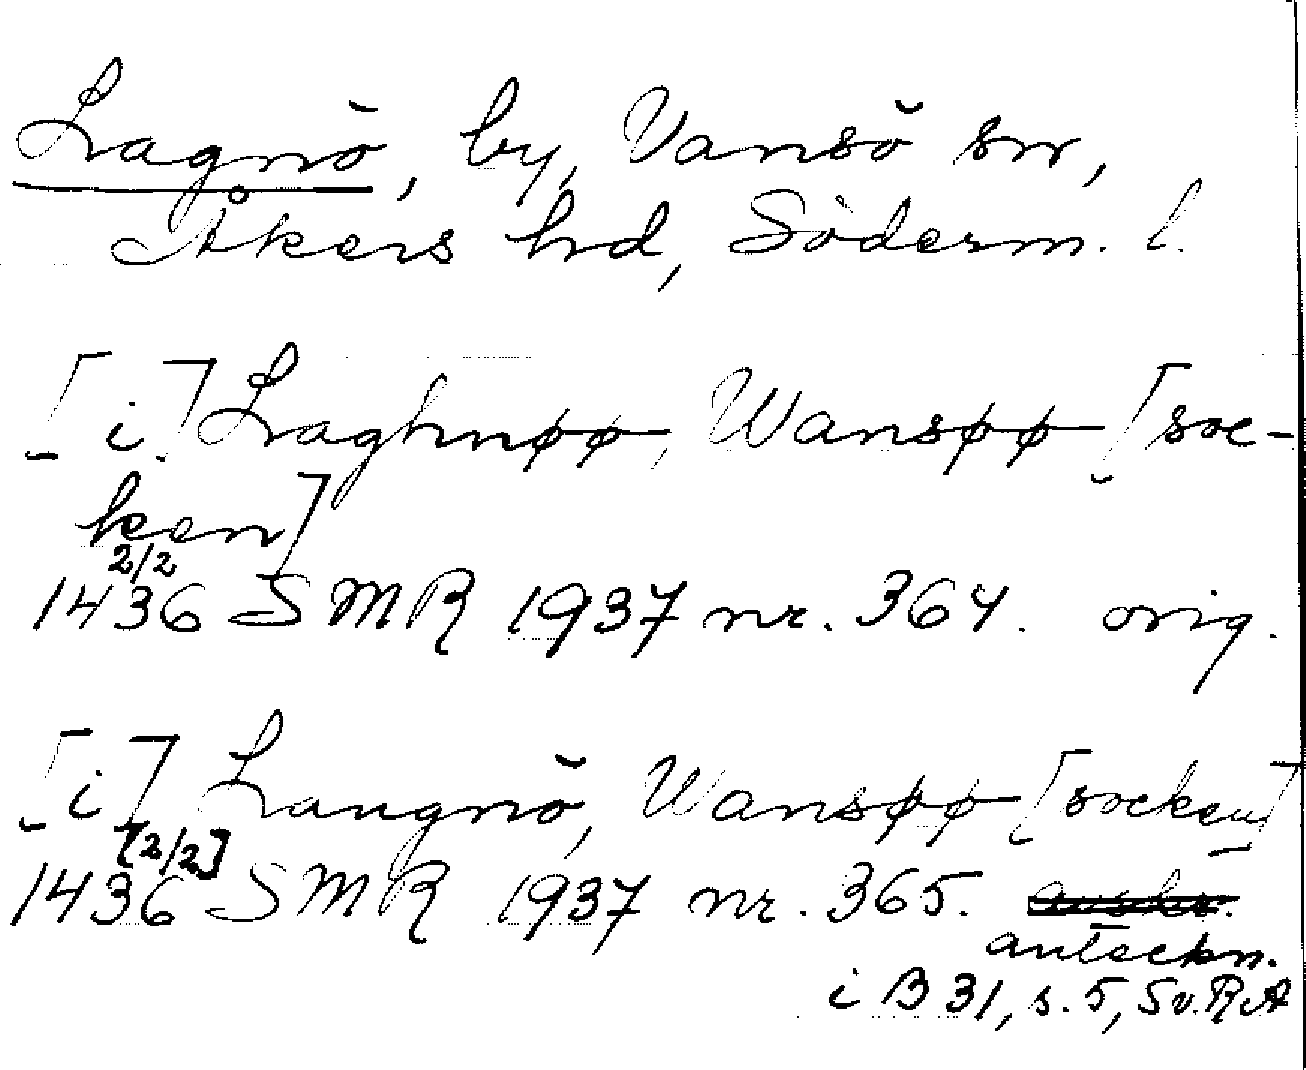 Lagnö, by, Vansö sn,
Åkers hd, Söderm. l.
[i] Laghnøø, Wansøø [soc-
ken]
2/2
1436 SMR 1937 nr. 364. orig.
[i] Laugnö, Wansøø [socken]
[2/2]
1436 SMR 1937 nr. 365. avskr.
anteckn.
i B 31, s. 5, Sv. RA